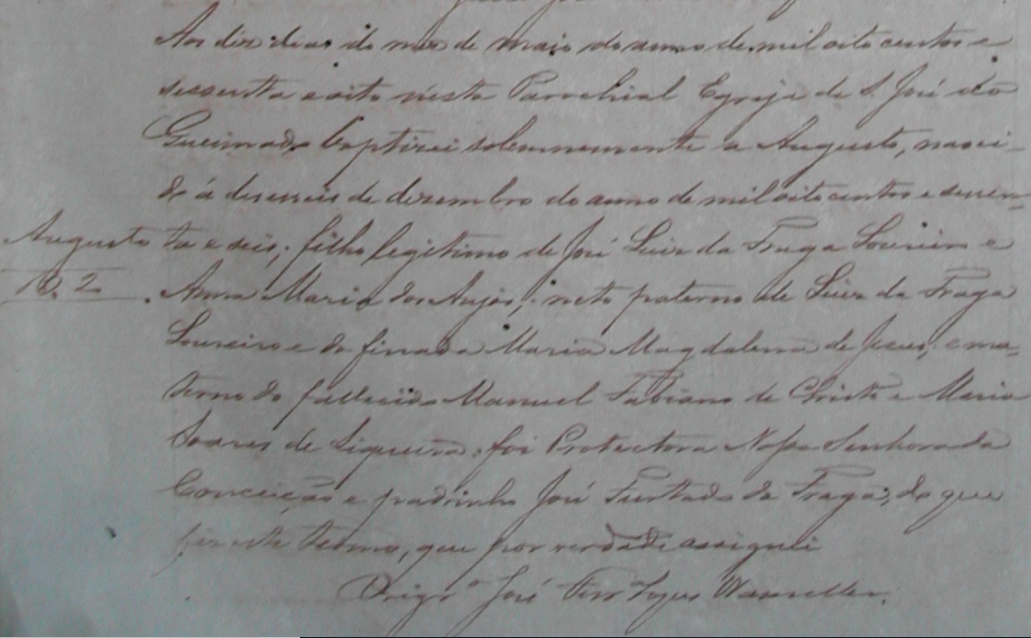 Aos dez dias do mez de maio do anno de mil oitocentos e
sessenta e oito n'esta Parochial Egreja de S. José do
Queimado baptizei solemnemente a Augusto, nasci-
do á deseseis de dezembro do anno de mil oitocentos e sessen-
Augusto
ta e seis; filho legitimo de José Luiz da Fraga Loureiro e
Anna Maria dos Anjos; neto paterno de Luiz da Fraga
Loureiro e da finada Maria Magdalena de Jesus; e ma-
terno do fallecido Manuel Fabiano de Christo e Maria
Soares de Siqueira: foi Protectora Nossa Senhora da
Conceição e padrinho José Furtado da Fraga; do que
fiz este termo, que por verdade assignei
José Lopes